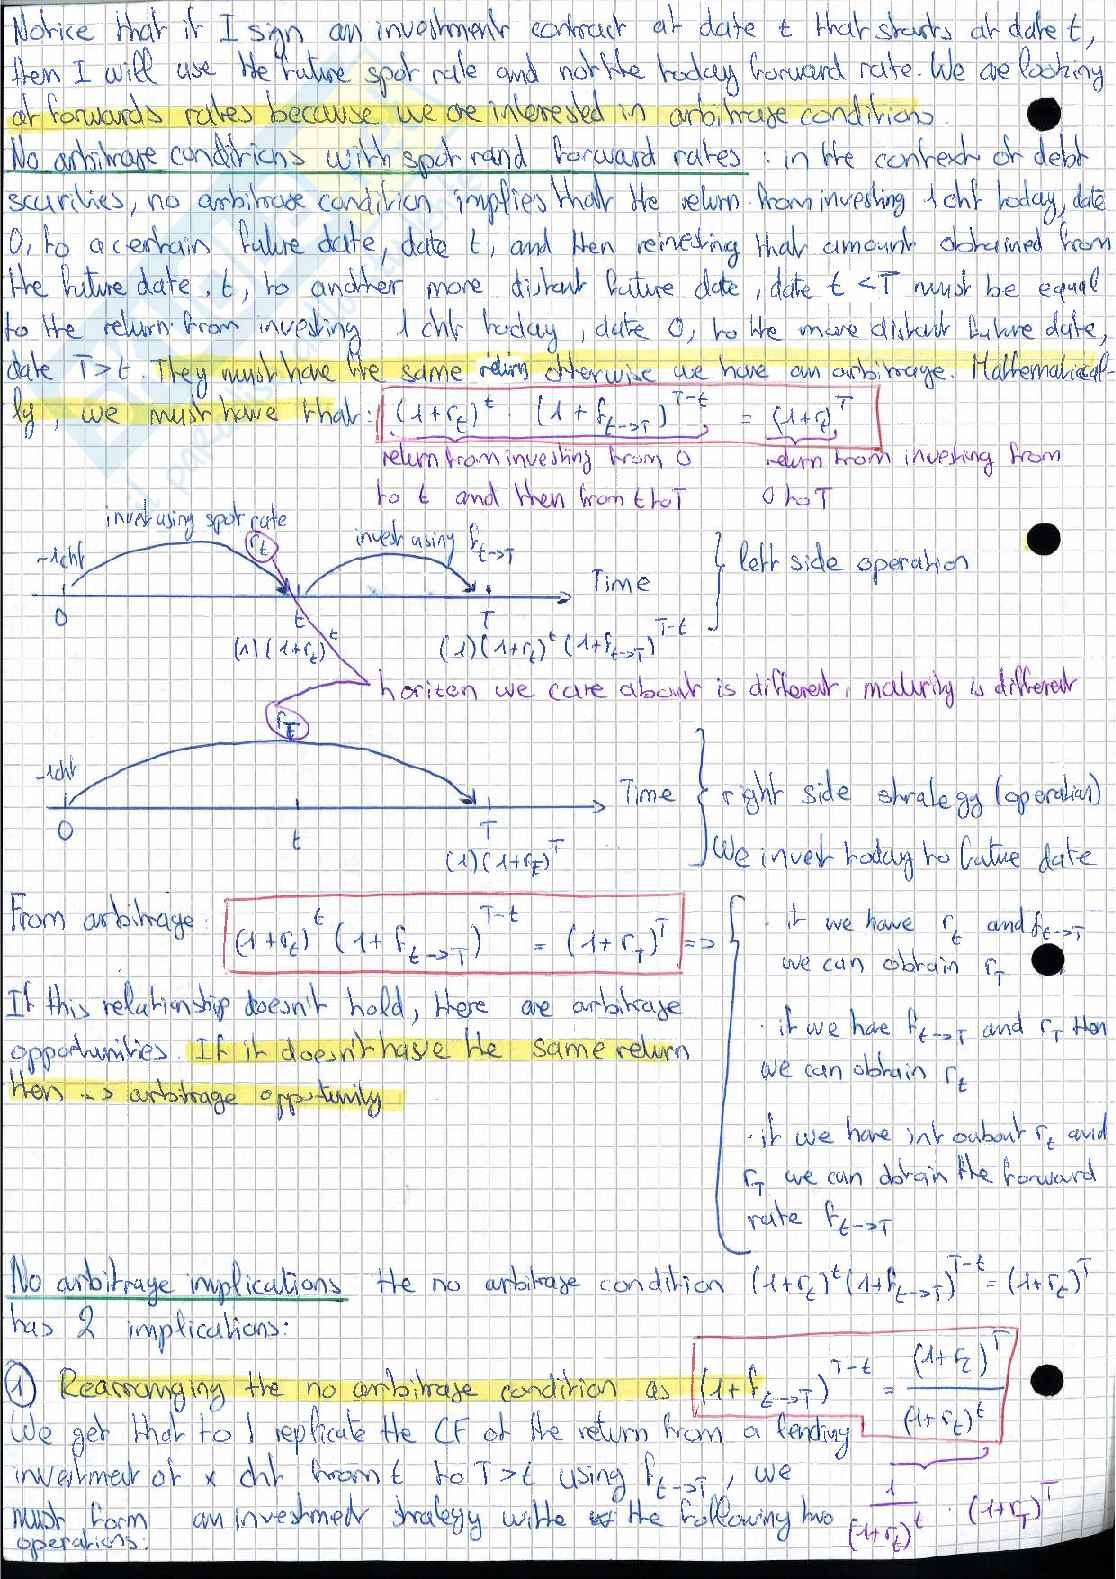 Notice that if I sign an investment contract at date t that starts at date t,
then I will use the future spot rate and not the today forward rate. We are looking
at forwards rates because we are interested in arbitrage conditions.
No arbitrage conditions with spot rand forward rates : in the context of debt
securities, no arbitrage condition implies that the return from investing 1 chf today, date
0, to a certain future date, date t, and then reinvesting that amount obtained from
the future date, t, to another more distant future date, date t < T must be equal
to the return from investing 1 chf today, date 0, to the more distant future date,
date T > t. They must have the same return otherwise we have an arbitrage. Mathematical-
ly, we must have that: (1+r_t)^t · (1 + f_t->T)^T-t = (1+r_T)^T
return from investing from 0 return from investing from
to t and then from t to T 0 to T
invest using spot rate
r_t invest using f_t->T
-1chf
left side operation
Time
0 t T
(1)(1+r_t)^t (1)(1+r_t)^t (1+f_t->T)^T-t
horizon we care about is different, maturity is different
r_T
-1chf
Time right side strategy (operation)
0 t T
(1)(1+r_T)^T We invest today to future date
From arbitrage: (1+r_t)^t (1 + f_t->T)^T-t = (1+r_T)^T =>
· if we have r_t and f_t->T
we can obtain r_T
If this relationship doesn't hold, there are arbitrage
opportunities. If it doesn't have the same return
then -> arbitrage opportunity
· if we have f_t->T and r_T then
we can obtain r_t
· if we have inf oabout r_t and
r_T we can obtain the forward
rate f_t->T
No arbitrage implications the no arbitrage condition (1+r_t)^t (1+f_t->T)^T-t = (1+r_T)^T
has 2 implications:
① Rearranging the no arbitrage condition as (1+f_t->T)^T-t = (1+r_T)^T / (1+r_t)^t
We get that to replicate the CF of the return from a lending
investment of x chf from t to T>t using f_t->T, we
must form an investment strategy with the following two
operations:
1 / (1+r_t)^t · (1+r_T)^T